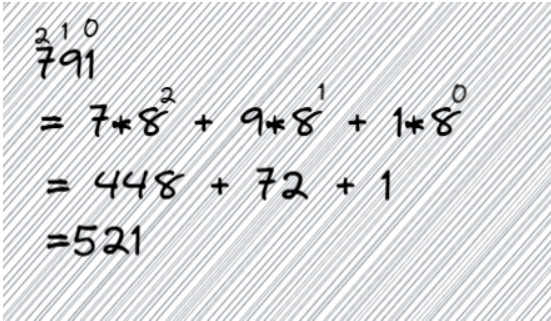 2 1 0
791
= 7*8² + 9*8¹ + 1*8⁰
= 448 + 72 + 1
=521